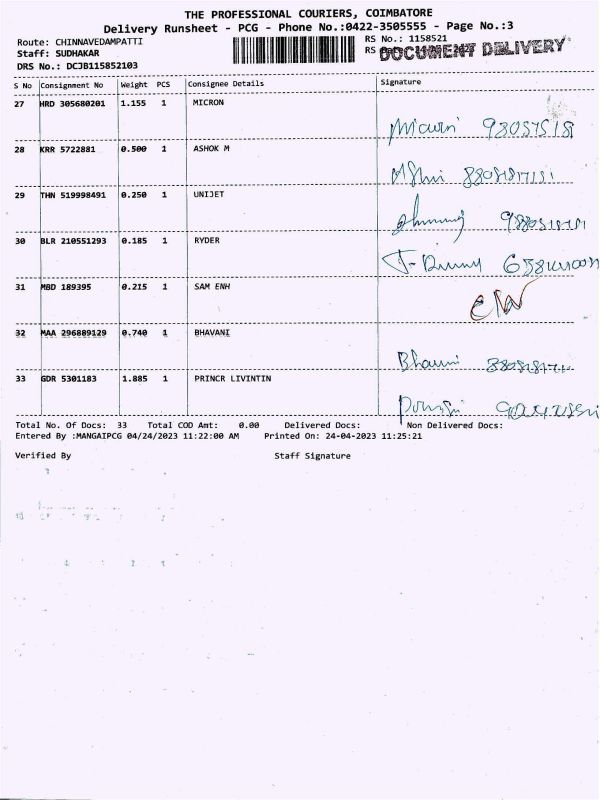 THE PROFESSIONAL COURIERS, COIMBATORE
Delivery Runsheet - PCG - Phone No.:0422-3505555 - Page No.:3
Route: CHINNAVEDAMPATTI
RS No.: 1158521
Staff: SUDHAKAR
RS
DOCUMENT DELIVERY
DRS No.: DCJB115852103
S No Consignment No Weight PCS Consignee Details Signature
27 HRD 305680201 1.155 1 MICRON
28 KRR 5722881 0.500 1 ASHOK M
29 THN 519998491 0.250 1 UNIJET
30 BLR 210551293 0.185 1 RYDER
31 MBD 189395 0.215 1 SAM ENH
32 MAA 296889129 0.740 1 BHAVANI
Bhavni
33 GDR 5301183 1.885 1 PRINCR LIVINTIN
Total No. Of Docs: 33 Total COD Amt: 0.00 Delivered Docs: Non Delivered Docs:
Entered By :MANGAIPCG 04/24/2023 11:22:00 AM Printed On: 24-04-2023 11:25:21
Verified By Staff Signature